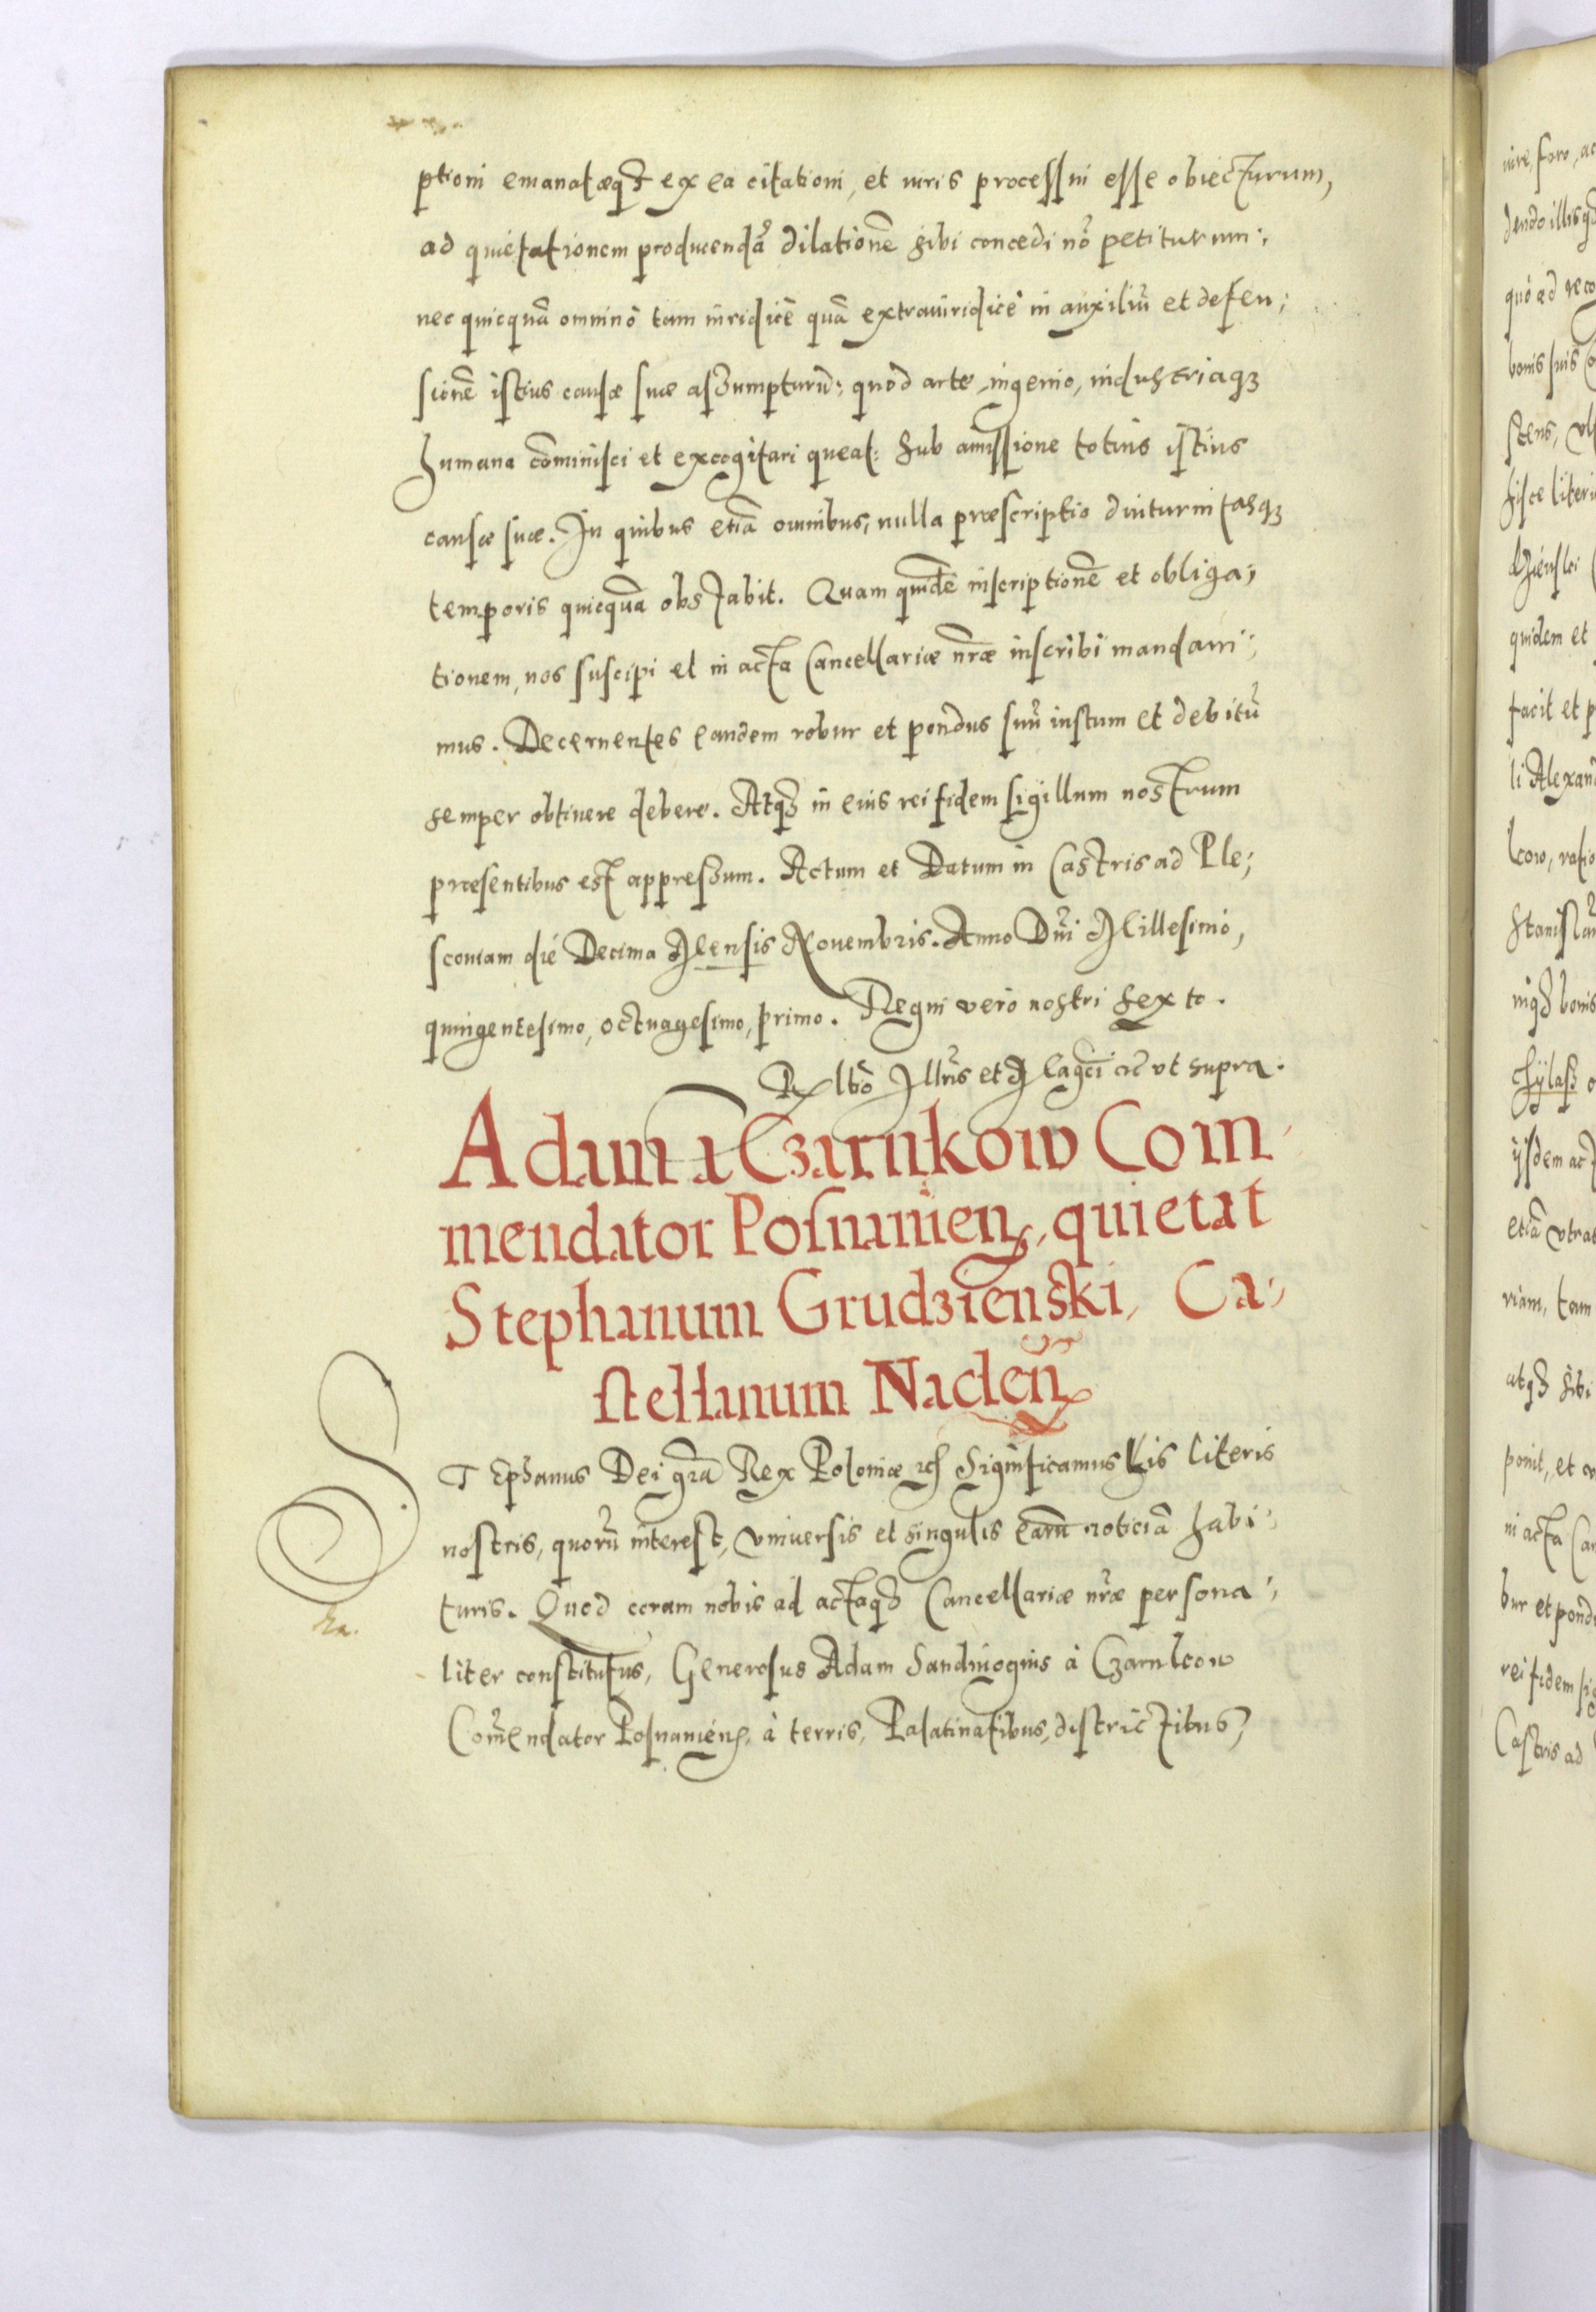 ptioni emanatæq₃ ex ea citationi, et iuris processui esse obiecturum,
ad quietationem producendā dilationē sibi concedi nō petiturum:
nec quicquā omninò tam iuridicè quā extraiuridicè in auxiliū et defen;
sionē istius causæ suæ assumpturū: quod arte, ingenio, industriaq₃
humana cōminisci et excogitari queat: sub amissione totius istius
causæ suæ. In quibus etiā omnibus, nulla præscriptio diuturnitasq₃
temporis quicquā obstabit. Quam quidē inscriptionē et obliga;
tionem, nos suscipi et in acta Cancellariæ nr̃æ inscribi mandaui;
mus. Decernentes eandem robur et pondus suū iustum et debitū
semper obtinere debere. Atq₃ in eius rei fidem sigillum nostrum
præsentibus est appressum. Actum et Datum in Castris ad Ple;
scouiam die Decima Mensis Nouembris. Anno Dñi Millesimo,
quingentesimo, octuagesimo, primo. Regni vero nostri sexto.
Rltō Illris et Magci &c vt supra.
Adam à Czarnkow Com
mendator Posnanien, quietat
Stephanum Grudzienski, Ca;
stellanum Naclen̄
STEphanus Dei grā Rex Poloniæ &c Significamus his literis
nostris, quorū interest, vniuersis et singulis earū noticiā habi;
turis. Quod coram nobis ad actaq₃ Cancellariæ nr̃æ persona;
liter constitutus, Generosus Adam Sandiuogius à Czarnkow
Com̃endator Posnanien̄, à terris, Palatinatibus, districtibus,
iure, foro, ac
dendo illis
quò ad reco
bonis suis
stens,
hisce literis
quidem et
facit et p
li Alexand
kow, ratio
Stanislau
niq₃ bonis
ijsdem act
etiā vtra
riam, tam
atq₃ sibi
ponit, et
in acta Can
bur et pond
rei fidem si
Castris ad